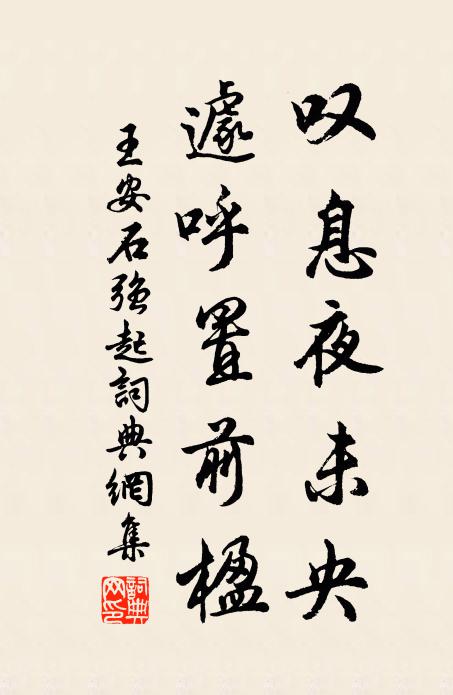 叹息夜未央
遽呼置前楹
王安石强起詞典網集
詞典网印